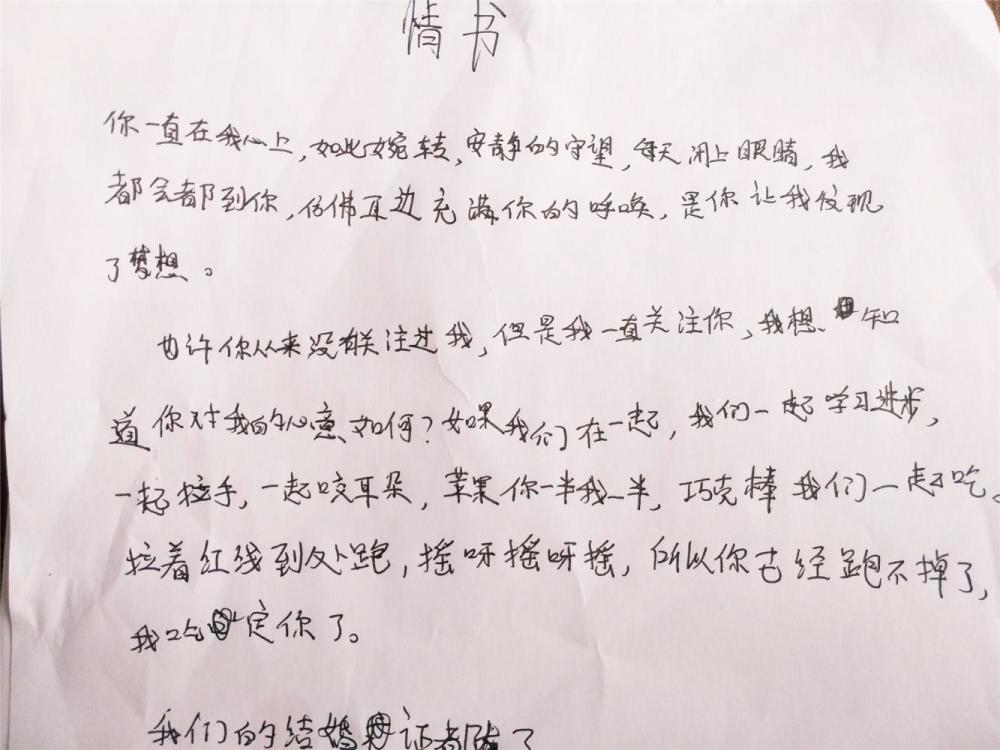 情书
你一直在我心上,如此婉转,安静的守望,每天闭上眼睛,我
都会都到你,仿佛耳边充满你的呼唤,是你让我发现
了梦想。
也许你从来没有关注过我,但是我一直关注你,我想知
道你对我的心意如何?如果我们在一起,我们一起学习进步,
一起拉手,一起咬耳朵,苹果你一半我一半,巧克棒我们一起吃。
拉着红线到处跑,摇呀摇呀摇,所以你已经跑不掉了,
我吃定你了。
我们的结婚证都 了